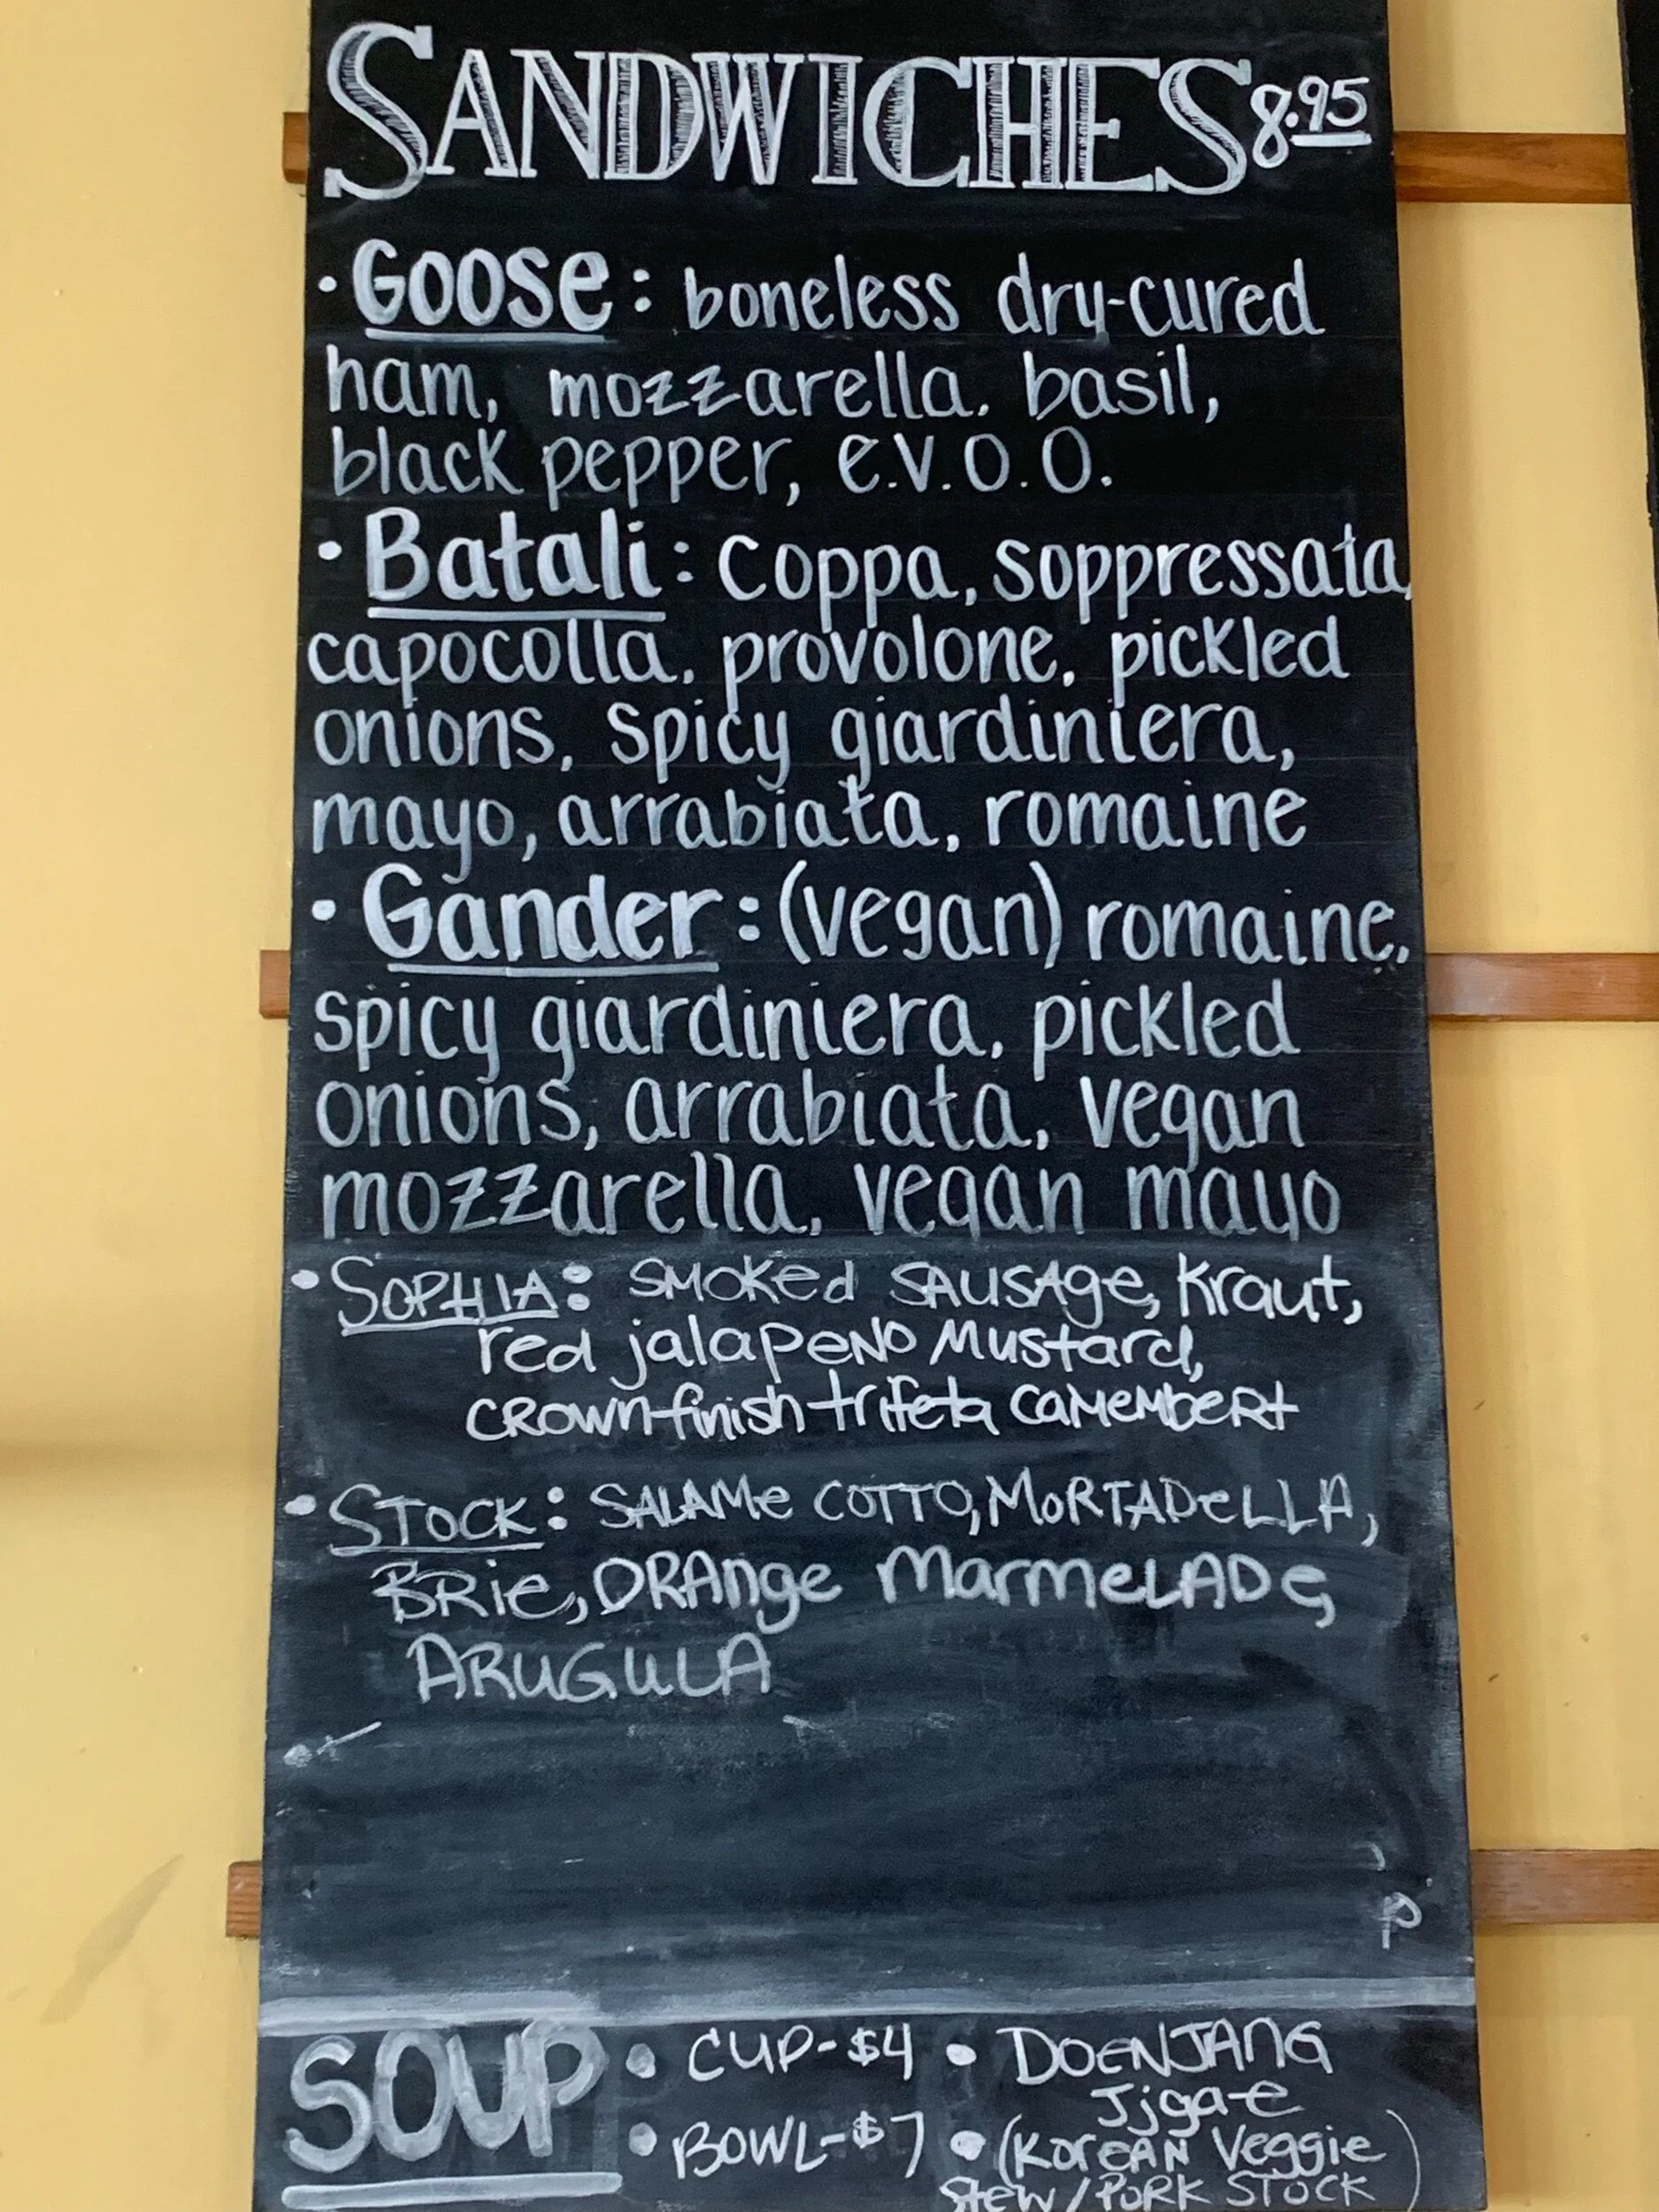 SANDWICHES 8.95
· Goose: boneless dry-cured
ham, mozzarella, basil,
black pepper, e.v.o.o.
· Batali: coppa, soppressata,
capocolla, provolone, pickled
onions, spicy giardiniera,
mayo, arrabiata, romaine
· Gander: (vegan) romaine,
spicy giardiniera, pickled
onions, arrabiata, vegan
mozzarella, vegan mayo
· SOPHIA: SMOKed SAUSAge, Kraut,
red jalapeNO Mustard,
CROWN finish trifeta CAMEMbeRt
· STOCK: SALAMe COTTO, MORTADeLLA,
BRie, ORAnge MarmeLADe,
ARUGULA
P
SOUP · CUP-$4 · DOENJANG
Jjgae
· BOWL-$7 · (KOREAN Veggie
Stew/PORK STOCK)